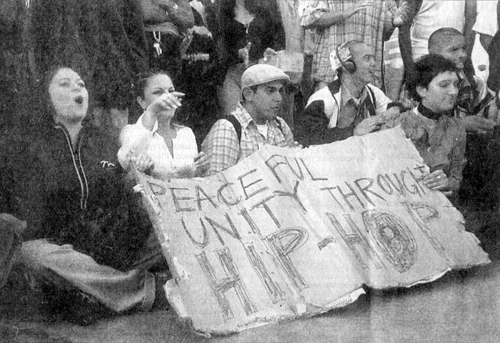 PEACEFUL
UNITY THROUGH
HIP-HOP